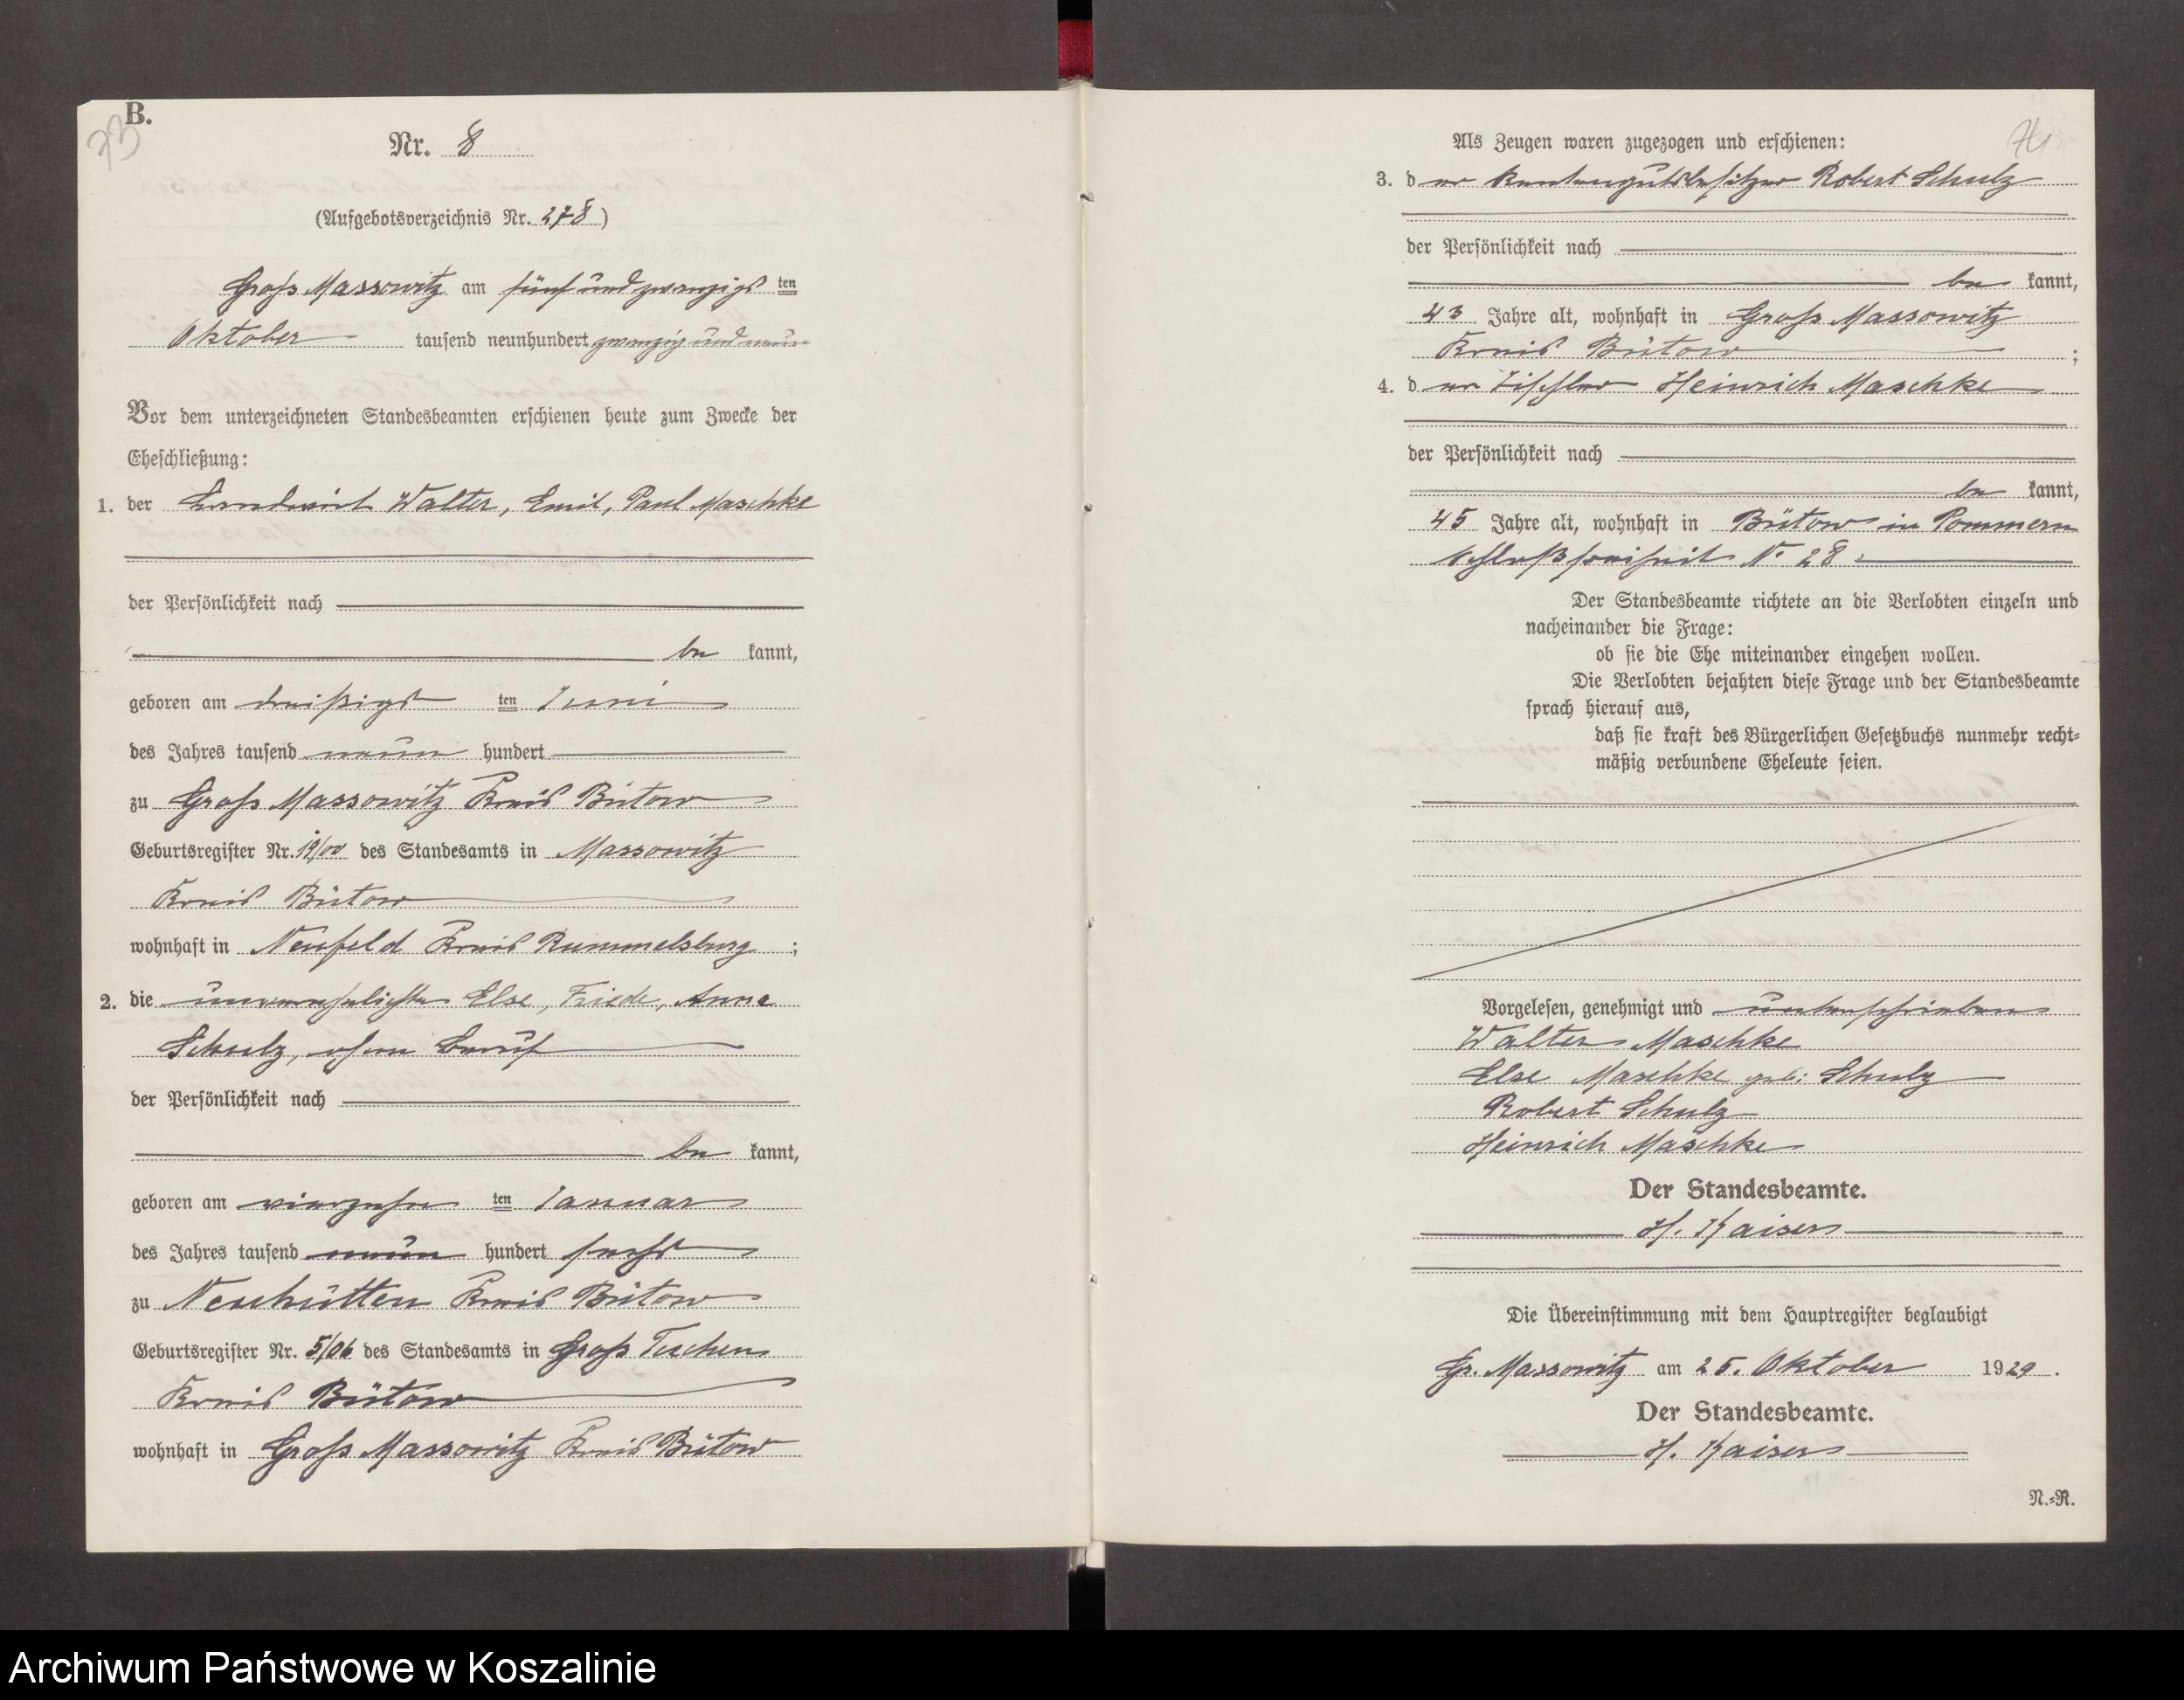 B.
73
Nr. 8
(Aufgebotsverzeichnis Nr. 278)
Groß Massowitz am fünfundzwanzigsten
Oktober tausend neunhundert zwanzig und neun
Vor dem unterzeichneten Standesbeamten erschienen heute zum Zwecke der
Eheschließung:
1. der Landwirt Walter, Emil, Paul Maschke
der Persönlichkeit nach
be kannt,
geboren am dreißigsten Juni
des Jahres tausend neun hundert
zu Groß Massowitz Kreis Bütow
Geburtsregister Nr. 19/00 des Standesamts in Massowitz
Kreis Bütow
wohnhaft in Neufeld Kreis Rummelsburg;
2. die unverehelichte Else, Friede, Anna
Schulz, ohne Beruf
der Persönlichkeit nach
be kannt,
geboren am vierzehnten Januar
des Jahres tausend neun hundert sechs
zu Neuhütten Kreis Bütow
Geburtsregister Nr. 5/06 des Standesamts in Groß Tuchen
Kreis Bütow
wohnhaft in Groß Massowitz Kreis Bütow
Als Zeugen waren zugezogen und erschienen:
74
3. der Rentengutsbesitzer Robert Schulz
der Persönlichkeit nach
be kannt,
43 Jahre alt, wohnhaft in Groß Massowitz
Kreis Bütow;
4. der Tischler Heinrich Maschke
der Persönlichkeit nach
be kannt,
45 Jahre alt, wohnhaft in Bütow in Pommern
Schloßfreiheit N. 28
Der Standesbeamte richtete an die Verlobten einzeln und
nacheinander die Frage:
ob sie die Ehe miteinander eingehen wollen.
Die Verlobten bejahten diese Frage und der Standesbeamte
sprach hierauf aus,
daß sie kraft des Bürgerlichen Gesetzbuchs nunmehr recht-
mäßig verbundene Eheleute seien.
Vorgelesen, genehmigt und unterschrieben
Walter Maschke
Else Maschke geb: Schulz
Robert Schulz
Heinrich Maschke
Der Standesbeamte.
H. Kaiser
Die Übereinstimmung mit dem Hauptregister beglaubigt
Gr. Massowitz am 25. Oktober 1929.
Der Standesbeamte.
H. Kaiser
N.-R.
Archiwum Państwowe w Koszalinie